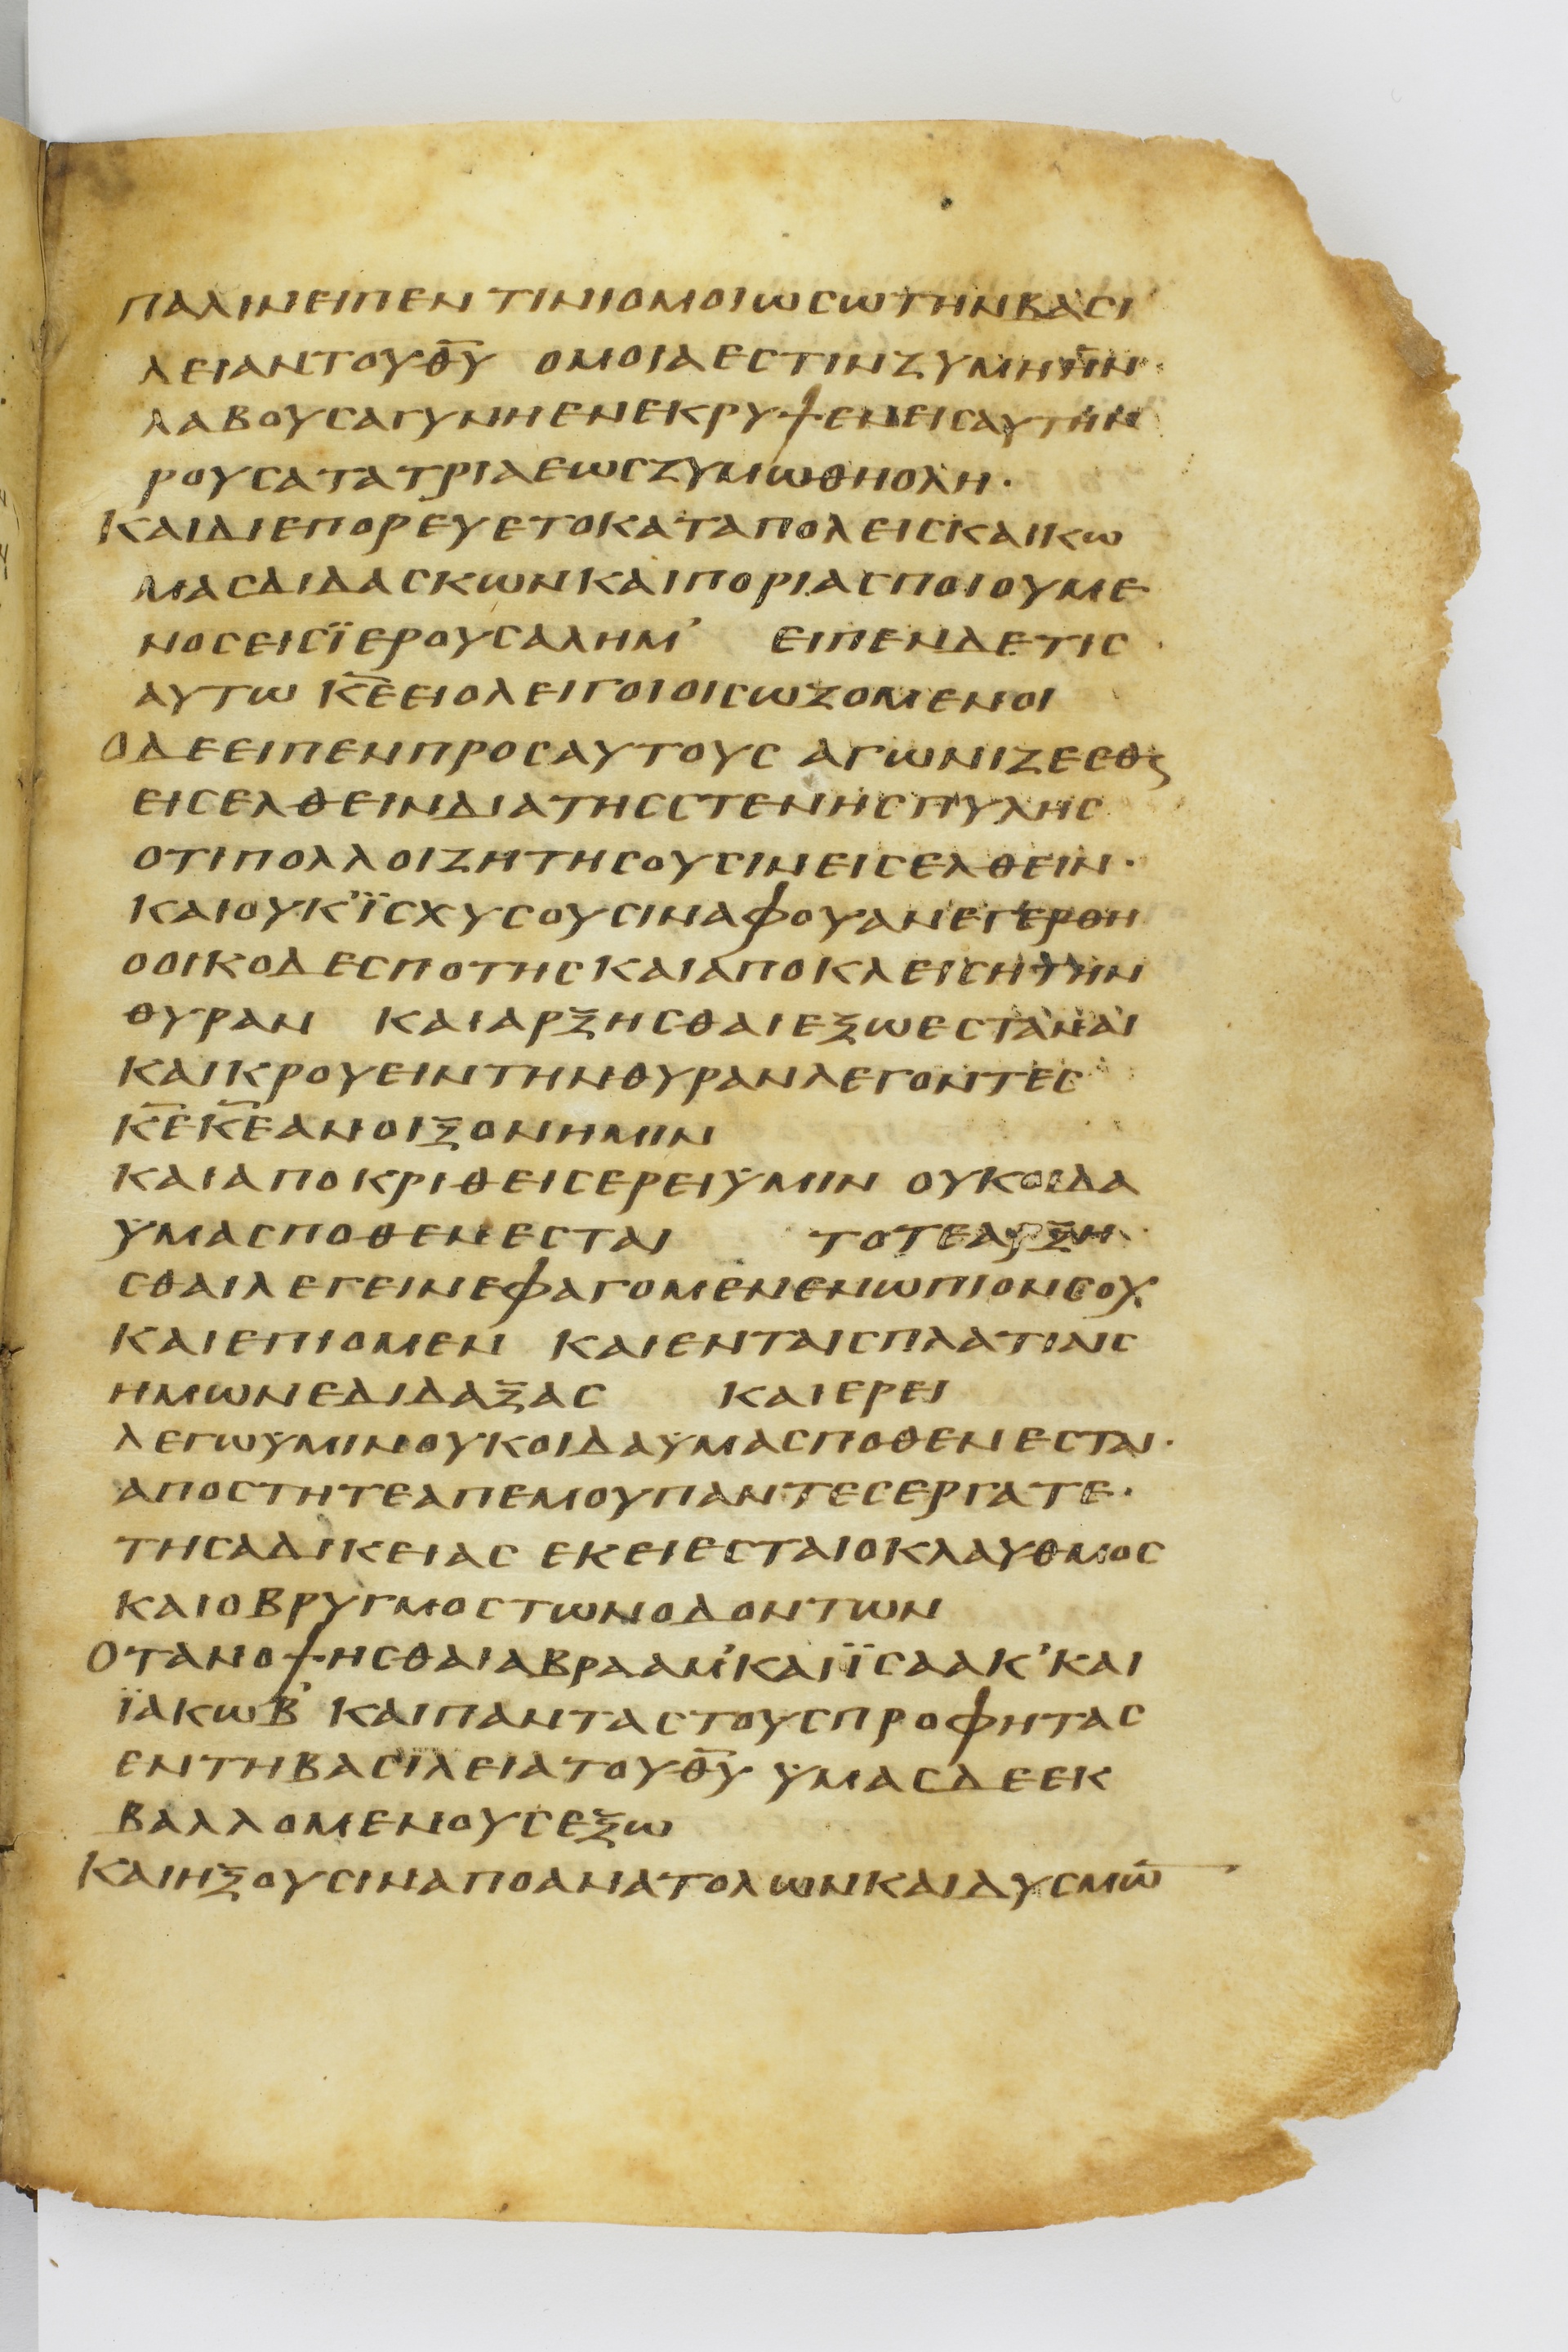 ΠΑΛΙΝΕΙΠΕΝ ΤΙΝΙΟΜΟΙΩСΩΤΗΝΒΑСΙ
ΛΕΙΑΝΤΟΥΘ̅Υ̅ ΟΜΟΙΑΕСΤΙΝΖΥΜΗΗΝ·
ΛΑΒΟΥСΑΓΥΝΗΕΝΕΚΡΥΨΕΝΕΙСΑΥΤΗΝ
ΡΟΥСΑΤΑΤΡΙΑΕΩСΖΥΜΩΘΗΟΛΗ·
ΚΑΙΔΙΕΠΟΡΕΥΕΤΟΚΑΤΑΠΟΛΕΙСΚΑΙΚΩ
ΜΑСΔΙΔΑСΚΩΝΚΑΙΠΟΡΙΑСΠΟΙΟΥΜΕ
ΝΟСΕΙСΪΕΡΟΥСΑΛΗΜ’ ΕΙΠΕΝΔΕΤΙС
ΑΥΤΩ Κ̅Ε̅ΕΙΟΛΕΙΓΟΙΟΙСΩΖΟΜΕΝΟΙ
ΟΔΕΕΙΠΕΝΠΡΟСΑΥΤΟΥС ΑΓΩΝΙΖΕСΘϗ
ΕΙСΕΛΘΕΙΝΔΙΑΤΗССΤΕΝΗСΠΥΛΗС
ΟΤΙΠΟΛΛΟΙΖΗΤΗСΟΥСΙΝΕΙСΕΛΘΕΙΝ·
ΚΑΙΟΥΚ’ΪСΧΥСΟΥСΙΝΑΦΟΥΑΝΕΓΕΡΘΗ
ΟΟΙΚΟΔΕСΠΟΤΗСΚΑΙΑΠΟΚΛΕΙСΗΤΗΝ
ΘΥΡΑΝ ΚΑΙΑΡΞΗСΘΑΙΕΞΩΕСΤΑΝΑΙ
ΚΑΙΚΡΟΥΕΙΝΤΗΝΘΥΡΑΝΛΕΓΟΝΤΕС
Κ̅Ε̅Κ̅Ε̅ΑΝΟΙΞΟΝΗΜΙΝ
ΚΑΙΑΠΟΚΡΙΘΕΙСΕΡΕΙΫΜΙΝ ΟΥΚΟΙΔΑ
ΫΜΑСΠΟΘΕΝΕСΤΑΙ ΤΟΤΕΑΡΞΗ·
СΘΑΙΛΕΓΕΙΝΕΦΑΓΟΜΕΝΕΝΩΠΙΟΝСΟΥ
ΚΑΙΕΠΙΟΜΕΝ ΚΑΙΕΝΤΑΙСΠΛΑΤΙΑΙС
ΗΜΩΝΕΔΙΔΑΞΑС ΚΑΙΕΡΕΙ
ΛΕΓΩΫΜΙΝΟΥΚΟΙΔΑΫΜΑСΠΟΘΕΝΕСΤΑΙ·
ΑΠΟСΤΗΤΕΑΠΕΜΟΥΠΑΝΤΕСΕΡΓΑΤΕ·
ΤΗСΑΔΙΚΕΙΑС ΕΚΕΙΕСΤΑΙΟΚΛΑΥΘΜΟС
ΚΑΙΟΒΡΥΓΜΟСΤΩΝΟΔΟΝΤΩΝ
ΟΤΑΝΟΨΗСΘΑΙΑΒΡΑΑΜ’ΚΑΙΪСΑΑΚ’ΚΑΙ
ΪΑΚΩΒ’ ΚΑΙΠΑΝΤΑСΤΟΥСΠΡΟΦΗΤΑС
ΕΝΤΗΒΑСΪΛΕΙΑΤΟΥΘ̅Υ̅ ΫΜΑСΔΕΕΚ
ΒΑΛΛΟΜΕΝΟΥСΕΞΩ
ΚΑΙΗΞΟΥСΙΝΑΠΟΑΝΑΤΟΛΩΝΚΑΙΔΥСΜΩ̅